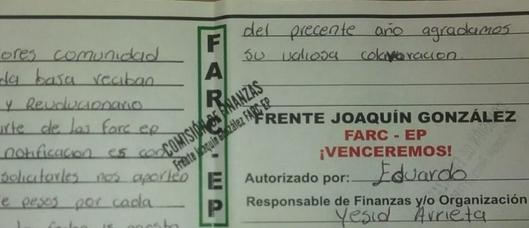 ores comunidad
da basa reciban
y Revolucionario
rte de las farc ep
notificacion es con
solicitarles nos aporten
e pesos por cada
FARC-EP
COMISIÓN DE FINANZAS
Frente Joaquín González FARC EP
del precente año agradamos
su valiosa colavoracion.
FRENTE JOAQUÍN GONZÁLEZ
FARC - EP
¡VENCEREMOS!
Autorizado por: Eduardo
Responsable de Finanzas y/o Organización
Yesid Arrieta